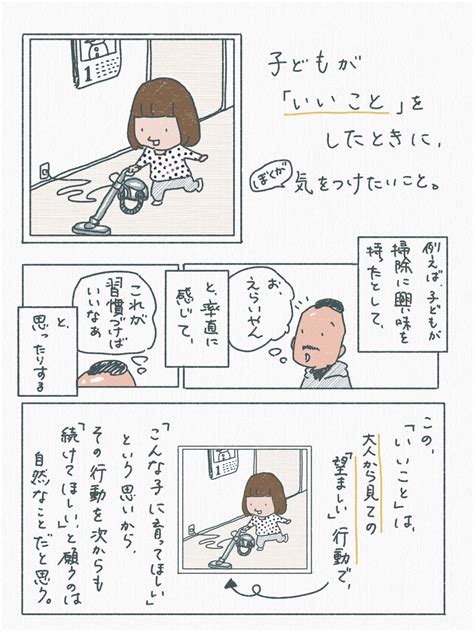 子どもが
「いいこと」を
したときに、
ぼくが
気をつけたいこと。
1
例えば、子どもが
掃除に興味を
持たとして、
お、
えらいやん
と、率直に
感じて、
これが
習慣づけば
いいなぁ
と、
思ったりする
この、
「いいこと」は、
大人から見ての
「望ましい」行動で、
「こんな子に育ってほしい」
という思いから、
その行動を次からも
続けてほしい、と願うのは
自然なことだと思う。
1